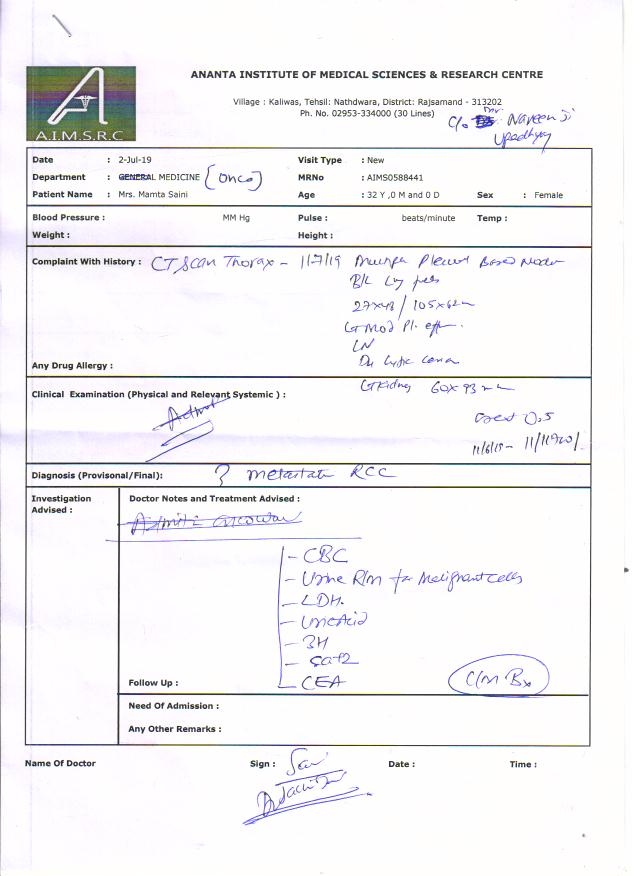 ANANTA INSTITUTE OF MEDICAL SCIENCES & RESEARCH CENTRE
Village : Kaliwas, Tehsil: Nathdwara, District: Rajsamand - 313202
Ph. No. 02953-334000 (30 Lines)
C/o. Mr. Naveen Ji
Upadhyay
A.I.M.S.R.C
Date : 2-Jul-19 Visit Type : New
Department : GENERAL MEDICINE (Onco) MRNo : AIMS0588441
Patient Name : Mrs. Mamta Saini Age : 32 Y ,0 M and 0 D Sex : Female
Blood Pressure : MM Hg Pulse : beats/minute Temp :
Weight : Height :
Complaint With History : CT Scan Thorax - 1/7/19 Pleural Based
B/L
27x48 / 105x62
Mod Pl. eff.
LN
Lytic
Any Drug Allergy :
Kidney 60x93
Clinical Examination (Physical and Relevant Systemic ) :
0.5
Diagnosis (Provisonal/Final): ? metastatic RCC
Investigation Advised :
Doctor Notes and Treatment Advised :
- CBC
- Urine R/m for Malignant cells
- LDH.
- Uric Acid
- CEA
C/m Bx
Follow Up :
Need Of Admission :
Any Other Remarks :
Name Of Doctor Sign : Date : Time :